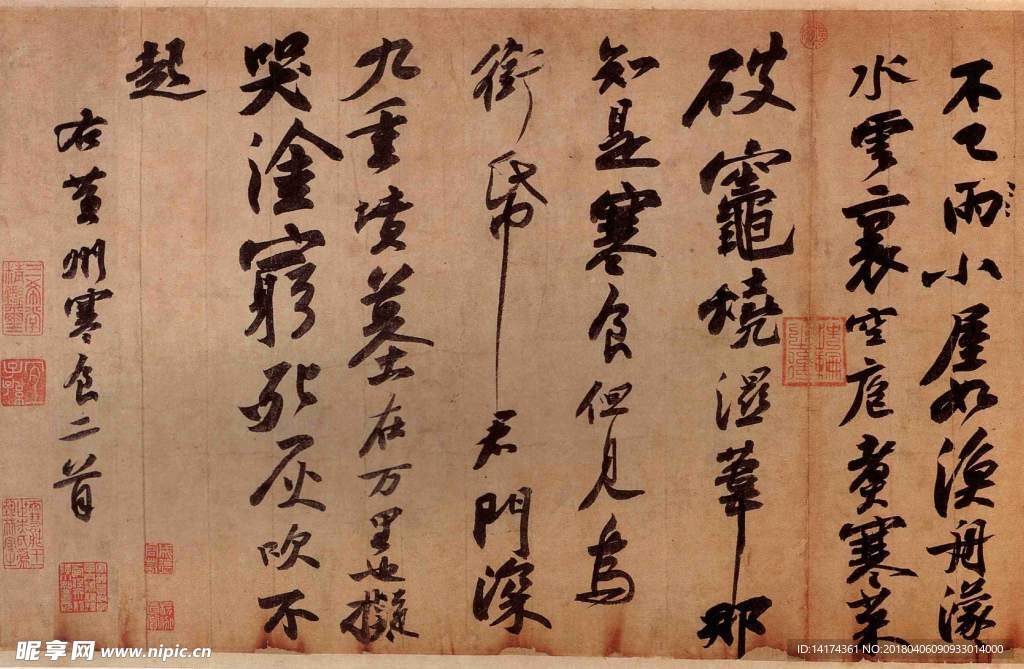 不已雨小屋如漁舟濛
水雲裏空庖煑寒菜
破竈燒濕葦那
知是寒食但見烏
銜帋君門深
九重墳墓在万里也擬
哭塗窮死灰吹不
起
右黄州寒食二首
昵享网 www.nipic.cn
ID:14174361 NO:20180406090933014000